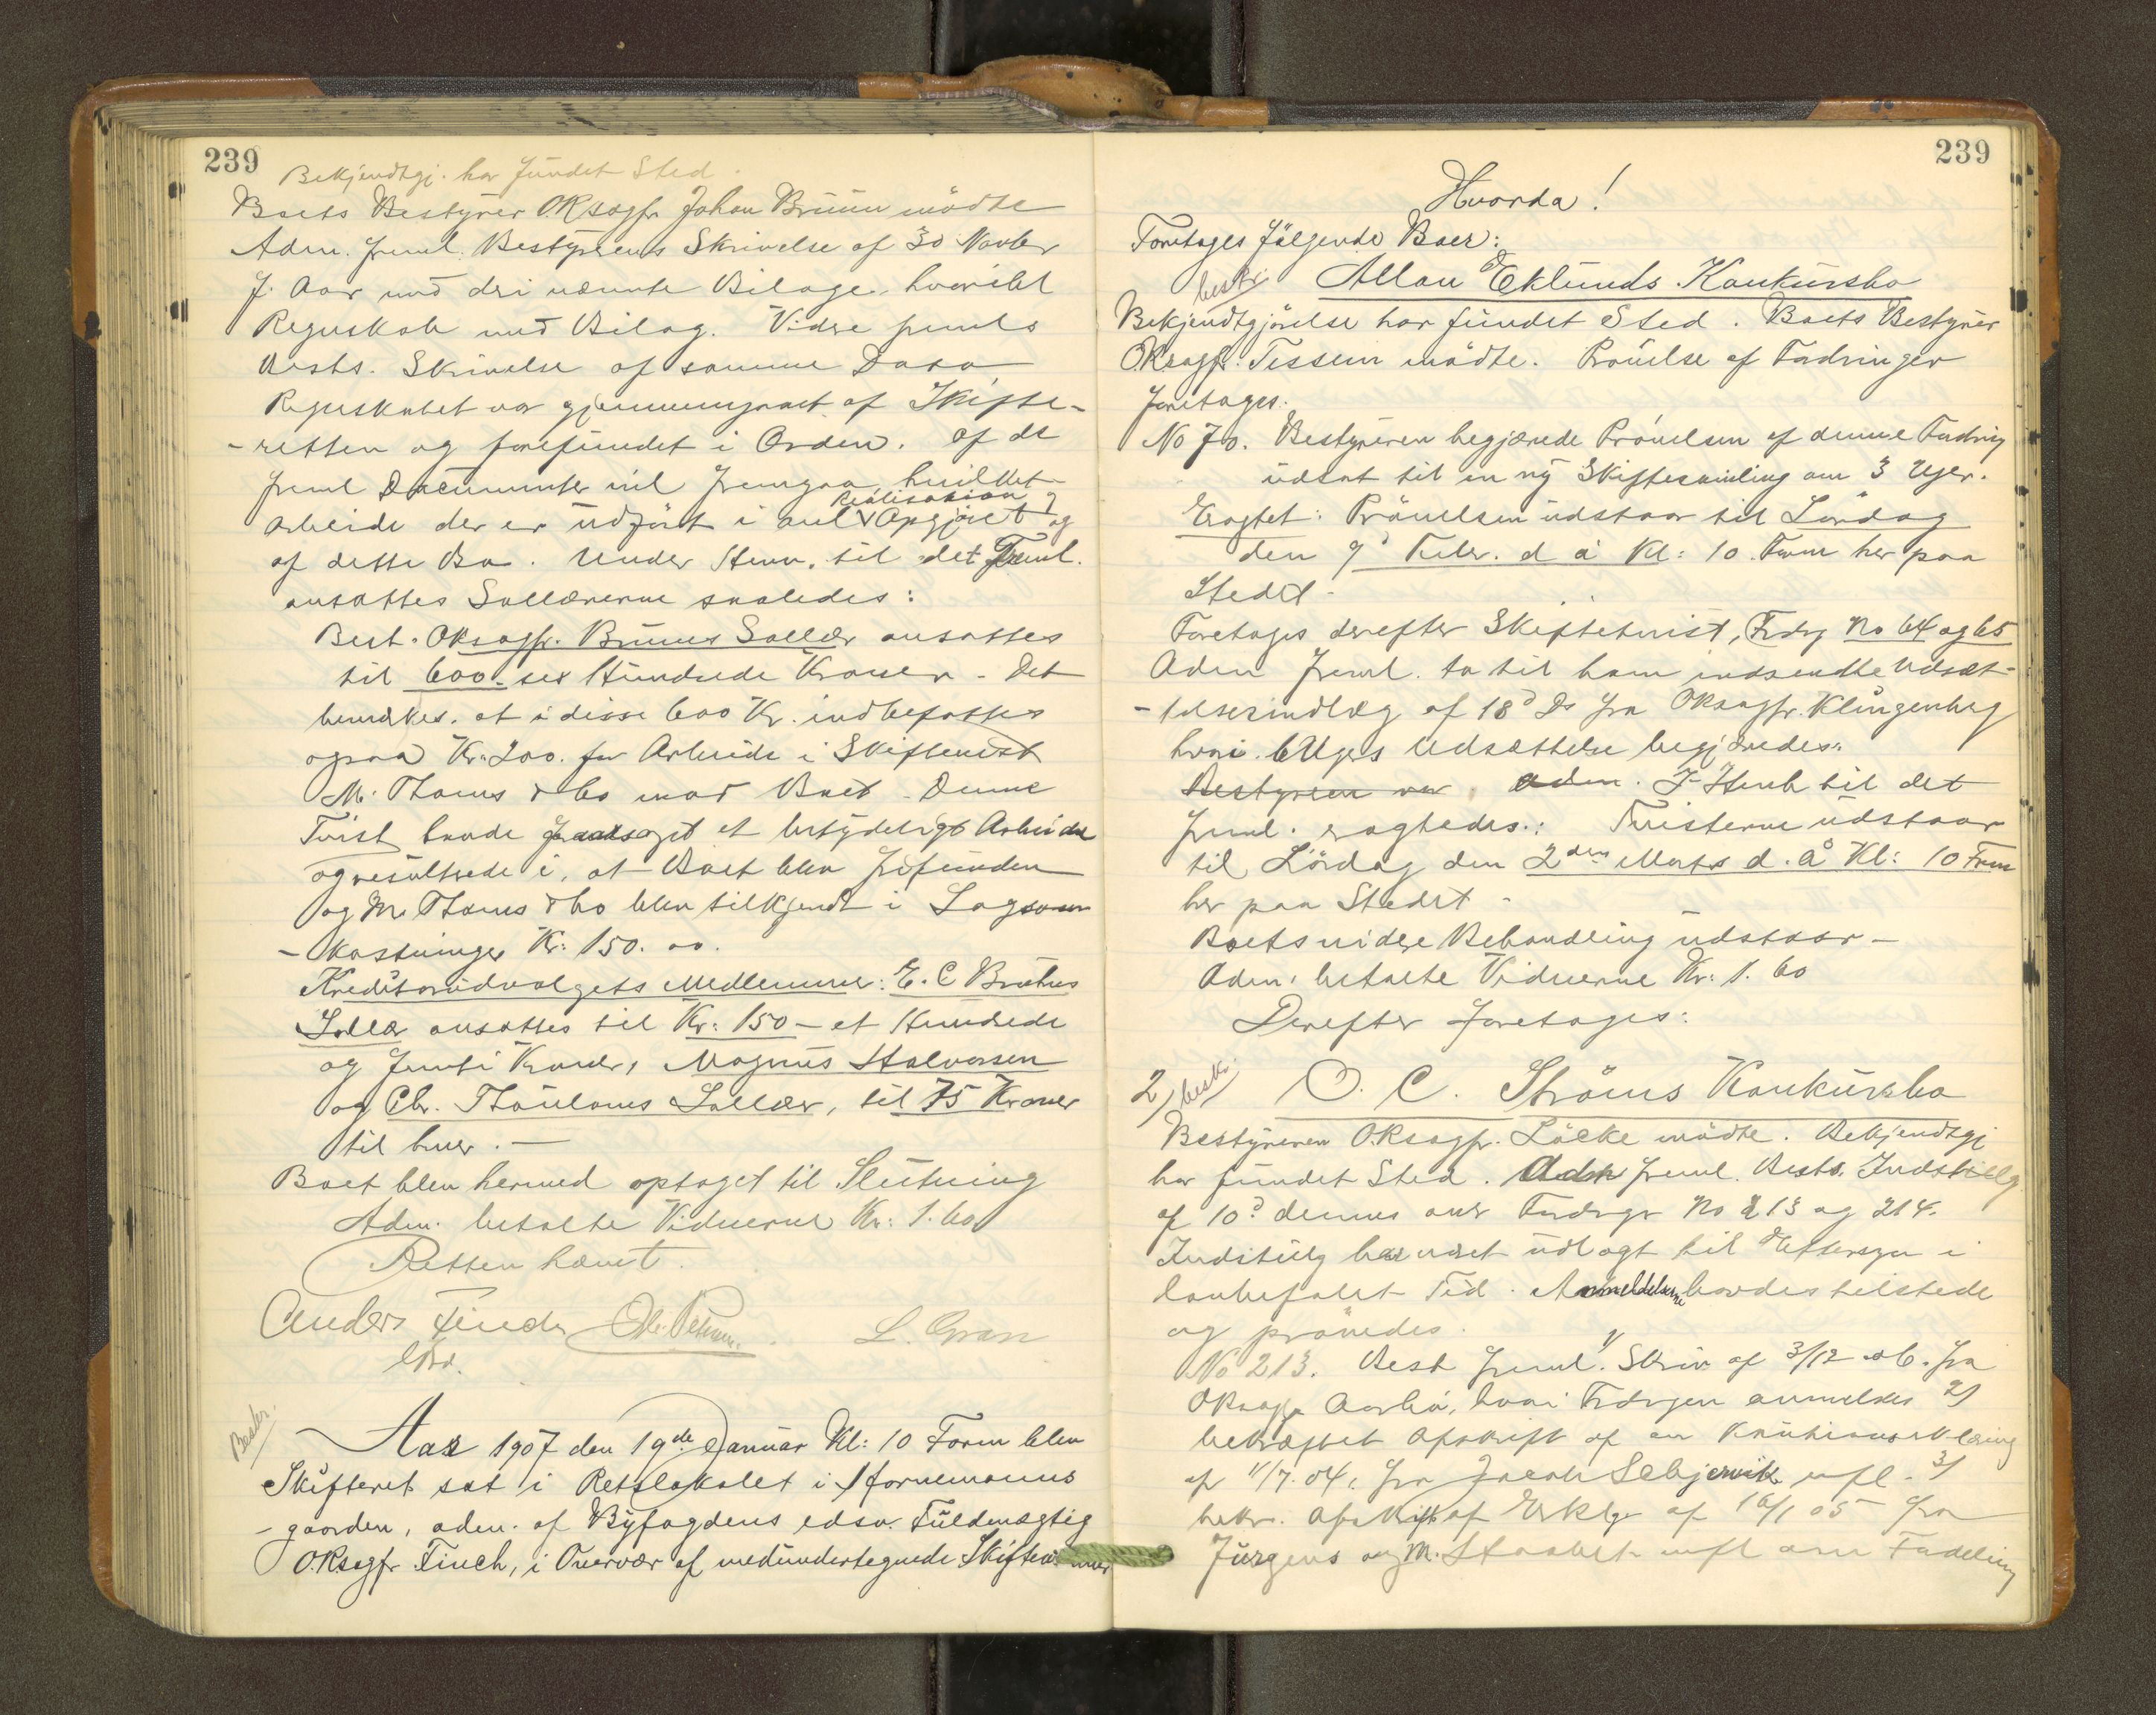 239
Bekjendtgj. har fundet Sted.
Boets Bestyrer O.R.sagfr Johan Bruun mödte
Adm. freml. Bestyrerens Skrivelse af 30 Novbr
f. Aar med deri nævnte Bilage, hvoriblt
Regnskab med Bilag. Videre fremls
Bests. Skrivelse af samme Dato
Regnskabet var gjennemgaaet af Skifte-
-retten og forefundet i Orden. Af de
freml Documenter vil fremgaa hvilket
Arbeide der er udført i anl Realisation og Opgjöret og
af dette Bo. Under Henv. til det Freml.
ansattes Sallærerne saaledes:
Best. O.R.sagfr. Bruuns Sallær ansattes
til 600 - sex Hundrede Kroner - Det
bemærkes, at i disse 600 Kr. indbefattes
ogsaa Kr. 200. for Arbeide i Skiftetvist
M. Thams & Co mod Boet. Denne
Tvist havde foraarsaget et betydeligt Arbeide
og resulterede i, at Boet blev frifunden
og M. Thams & Co blev tilkjendt i Sagsom-
-kostninger Kr: 150. oo.
Kreditorudvalgets Medlemmer: E. C Brutus
Sallær ansattes til Kr: 150 - et Hundrede
og femti Kroner, Magnus Halvorsen
og Chr. Thaulows Sallær, til 75 Kroner
til hver. -
Boet blev hermed optaget til Slutning
Adm. betalte Vidnerne Kr: 1. 60
Retten hævet.
Anders Finch L. Gran
Besktr.
Aar 1907 den 19de Januar Kl: 10 Form blev
Skifteret sat i Retslokalet i Hornemanns
-gaarden, adm. af Byfogdens edsv. Fuldmægtig
O.R.sagfr Finch, i Overvær af medundertegnede Skiftevidner
239
Hvorda!
Foretages fölgende Boer:
beskr. Allan Eklunds Konkursbo
Bekjendtgjörelse har fundet Sted. Boets Bestyrer
O.R.sagfr. Tessem mödte. Prövelse af Fordringer
foretages.
No 70. Bestyreren begjærede Prövelsen af denne Fordring
udsat til en ny Skiftesamling om 3 Uger.
Eragtet: Prövelsen udstaar til Lördag
den 9d Febr. d å Kl: 10 Form her paa
Stedet -
Foretages derefter Skiftetvist, Frdrg No 64 og 65
Adm freml. to til ham indsendte Udsæt-
-telsesindlæg af 18d Ds fra O.R.sagfr. Klingenberg
hvori 6 Ugers Udsættelse begjæredes.
Bestyreren var. Adm. I Henh til det
freml. eragtedes.: Tvisterne udstaar
til Lördag den 2den Marts d. å Kl: 10 Form
her paa Stedet -
Boets videre Behandling udstaar -
Adm. betalte Vidnerne Kr: 1. 60
Derefter foretages:
2/ beskr. O. C. Ströms Konkursbo
Bestyreren O.R.sagfr. Löcke mödte. Bekjendtgj
har fundet Sted. Adm freml. Bests. Indstillg
af 10d dennes over Fordrgr No 213 og 214.
Indstillg har været udlagt til Eftersyn i
lovbefalet Tid. Anmeldelserne havdes tilstede
og prövedes.
No 213. Best freml. 1/ Skriv af 3/12 06. fra
O.R.sagfr Aarbö, hvori Frdrgen anmeldes 2/
bekræftet Afskrift af en Kautionserklæring
af 1/7. 04, fra Jacob Selsjervik mfl. 3/
bekr. Afskrift af Erklg af 16/1 05 fra
Jürgens og M. mfl om Fordeling